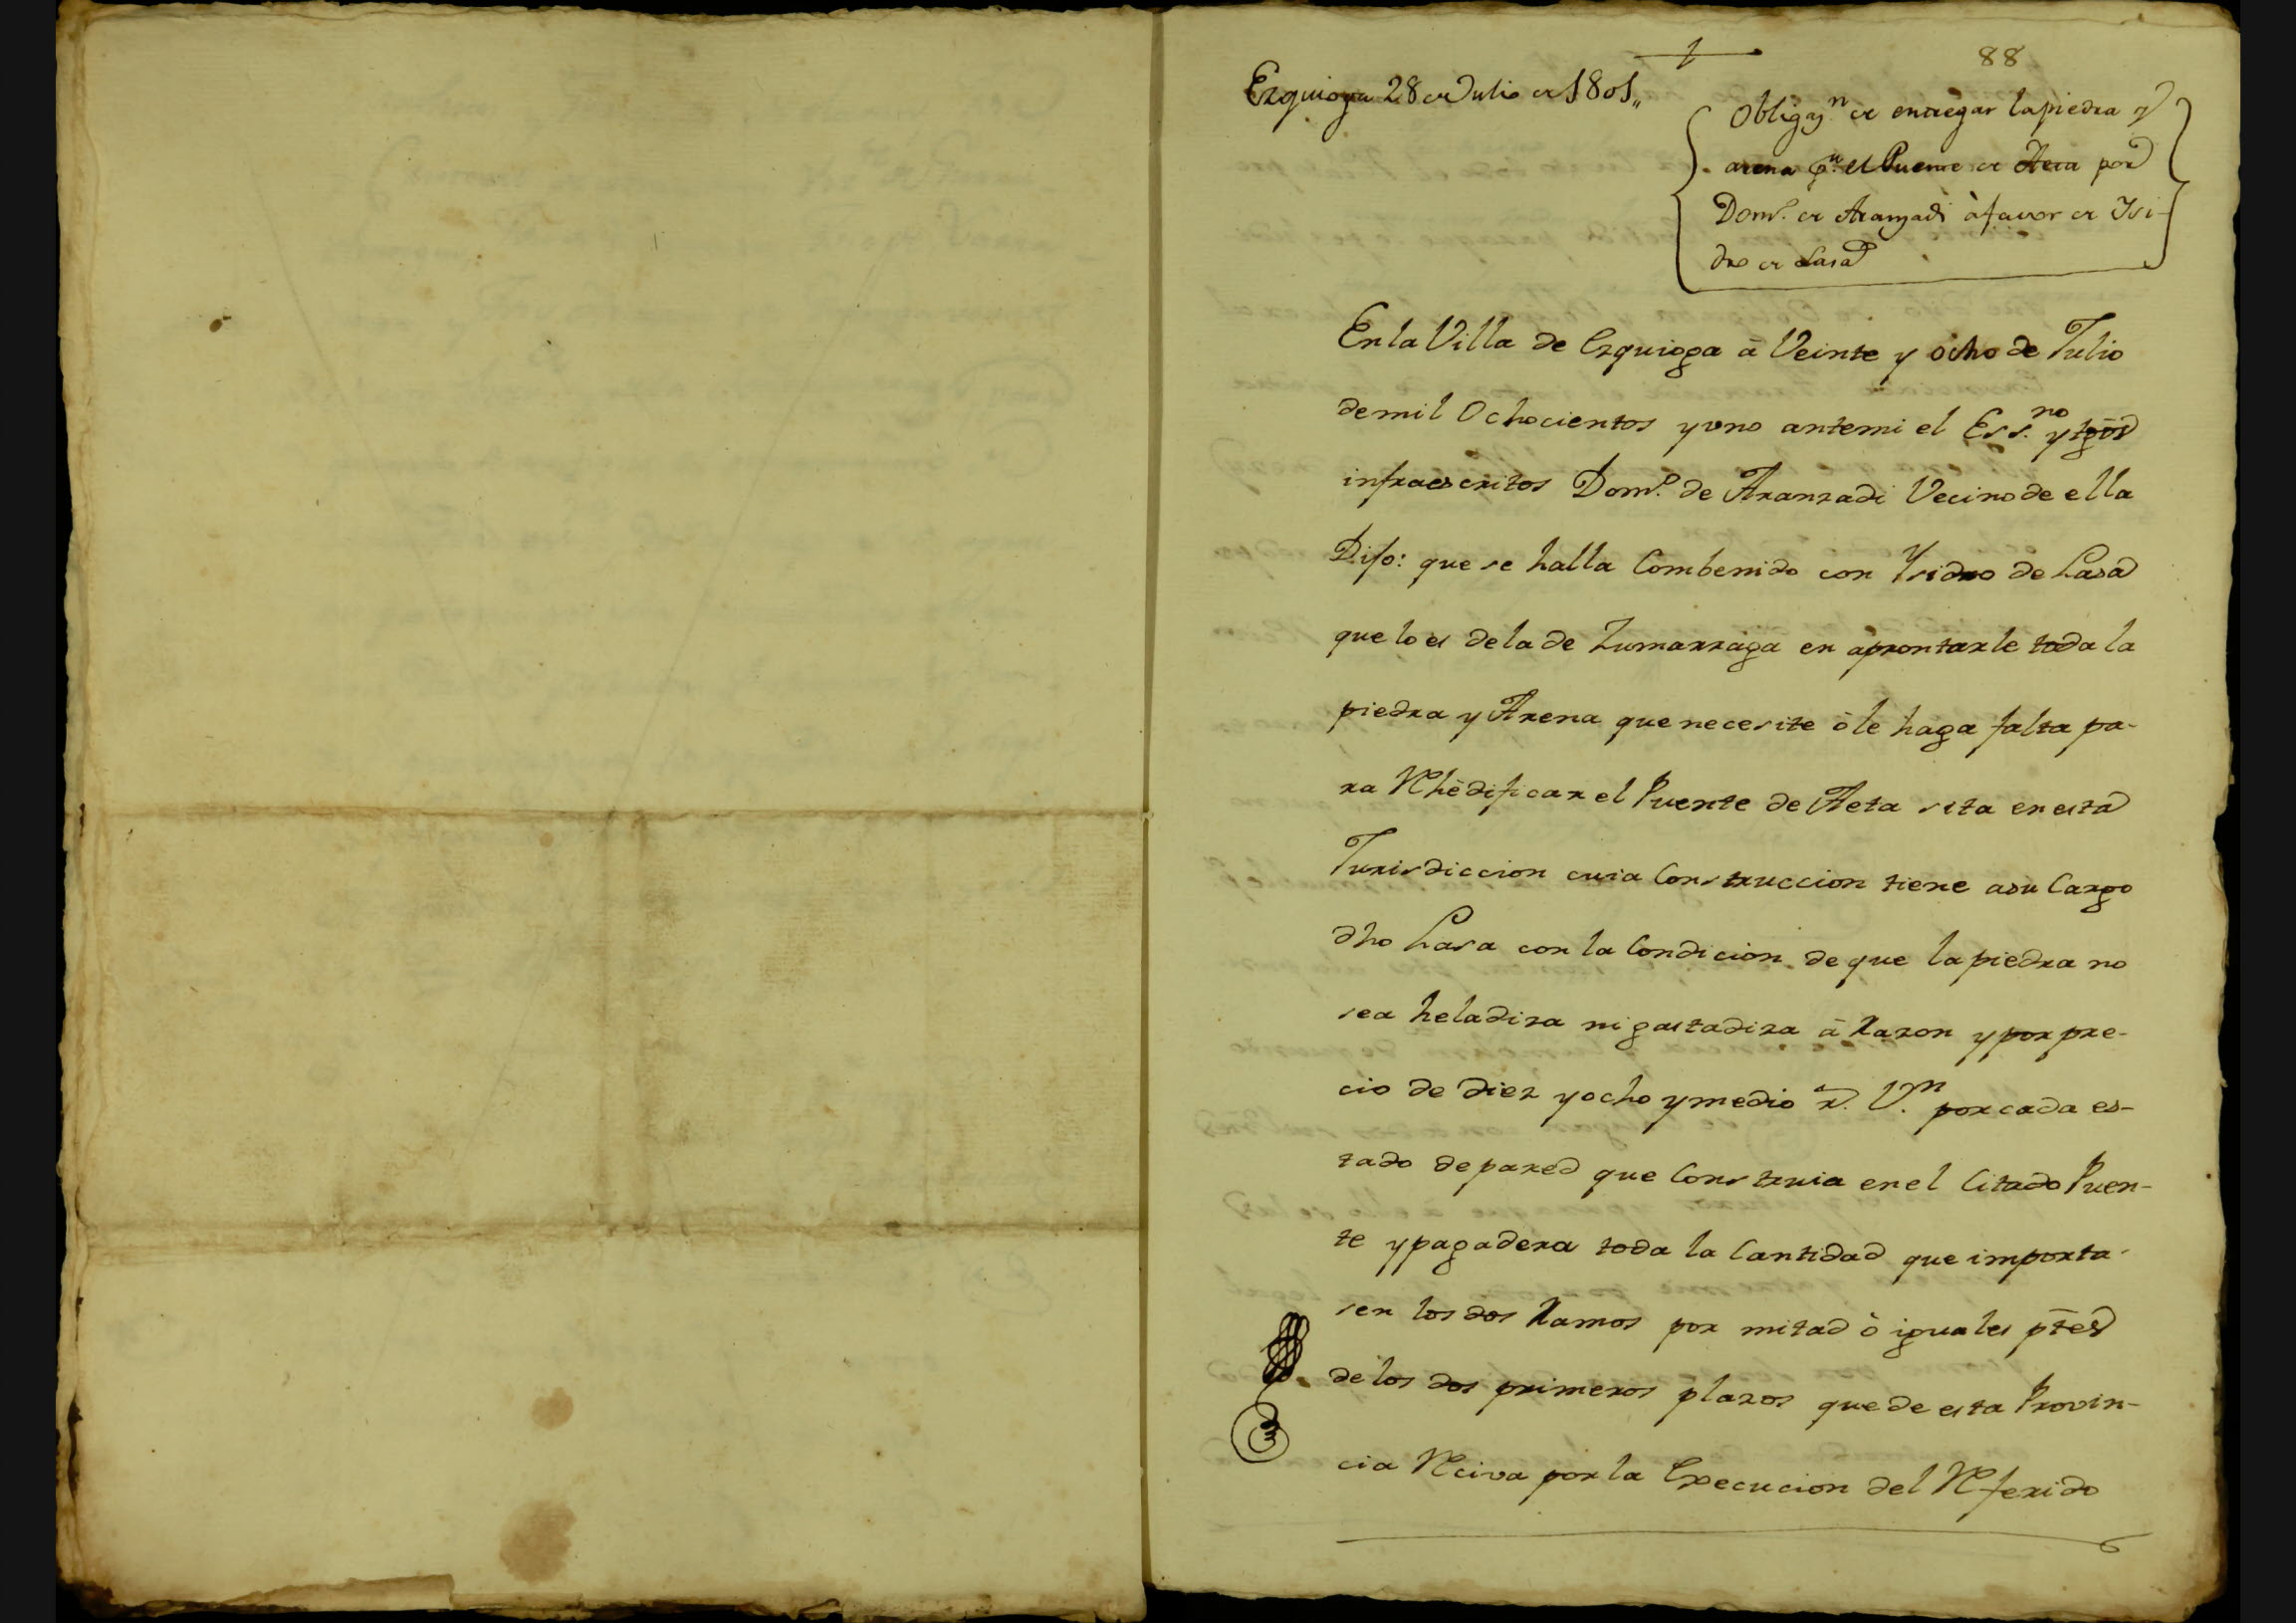 88
Ezquioga 28 de Julio de 1801,,
Obligaz.n de entregar la piedra y
arena p.a el Puente de Aeta por
Dom.o de Aranzadi à favor de Ysi-
dro de Lasa
En la Villa de Ezquioga â Veinte y ocho de Julio
de mil Ochocientos y uno antemi el Ess.no y tgos
infraescritos Dom.o de Aranzadi Vecino de ella
Dijo: que se halla Combenido con Ysidro de Lasa
que lo es dela de Zumarraga en aprontarle toda la
piedra y Arena que necesite ò le haga falta pa-
ra Rehedificar el Puente de Aeta sita en esta
Jurisdiccion cuia Construccion tiene asu Cargo
dho Lasa con la Condicion de que la piedra no
sea heladiza ni gastadiza â Razon y por pre-
cio de diez y ocho y medio r.s V.n por cada es-
tado de pared que Construia en el Citado Puen-
te y pagadera toda la Cantidad que importa-
sen los dos Ramos por mitad ò iguales ptes
de los dos primeros plazos que de esta Provin-
cia Reciva por la Execucion del Referido